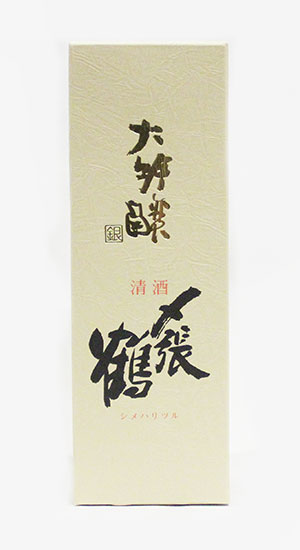 大吟醸
銀
清酒
〆張
鶴
シメハリツル